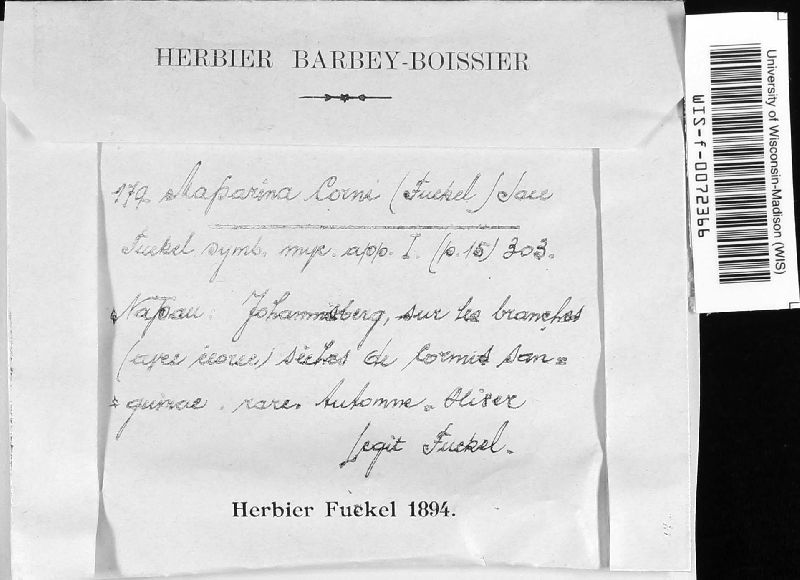 HERBIER BARBEY-BOISSIER
179 Massarina Corni (Fuckel) Sacc
Fuckel symb. myc. app. I. (p. 15) 303.
Nassau: Johannisberg, sur les branches
(avec écorce) sèches de Cornus san=
=guineae. rare. Automne.
Legit Fuckel.
Herbier Fuckel 1894.
University of Wisconsin-Madison (WIS)
WIS-f-0072366